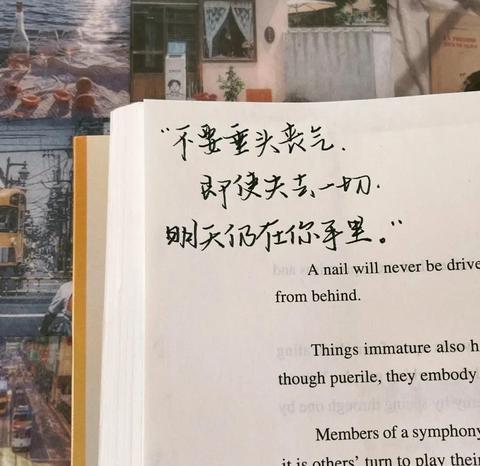 “不要垂头丧气.
即使失去一切.
明天仍在你手里。”
A nail will never be drive
from behind.
Things immature also h
though puerile, they embody
Members of a symphony
it is others' turn to play their